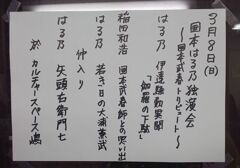 3月8日(日)
国本はる乃独演会
〜国本武春トリビュート〜
はる乃 伊達騒動異聞
「伽羅の下駄」
稲田和浩 国本武春師との思い出
はる乃 若き日の大浦兼武
仲入り
はる乃 矢頭右衛門七
於 カルチャースペース嶋